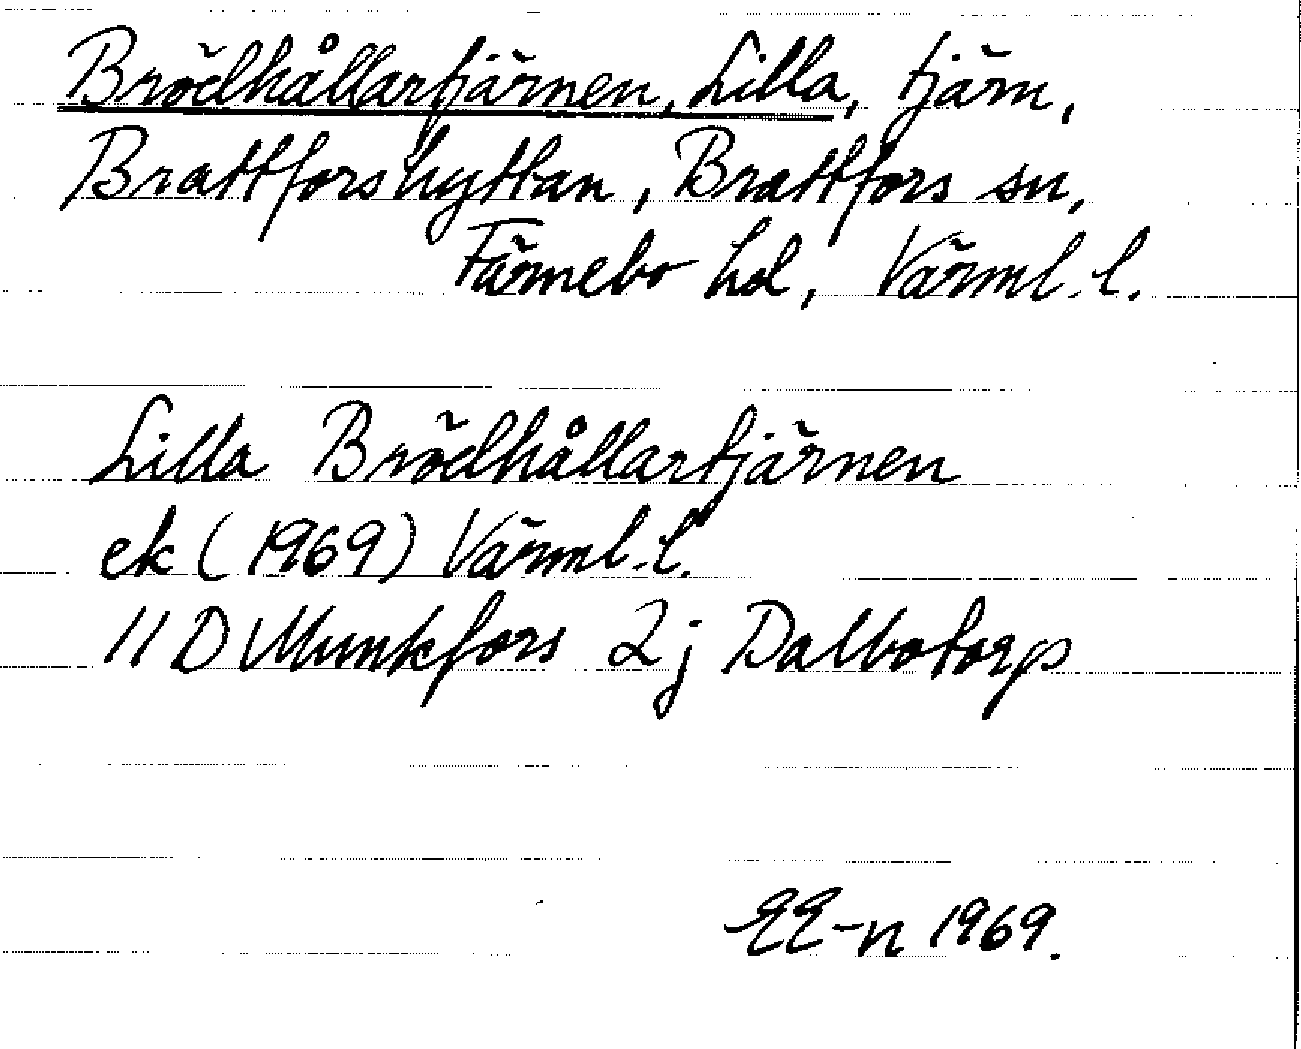 Brödhållartjärnen, Lilla, tjärn,
Brattforshyttan, Brattfors sn,
Färnebo hd, Värml. l.
Lilla Brödhållartjärnen
ek (1969) Värml. l.
11 D Munkfors 2 j Dalbotorp
EE-n 1969.